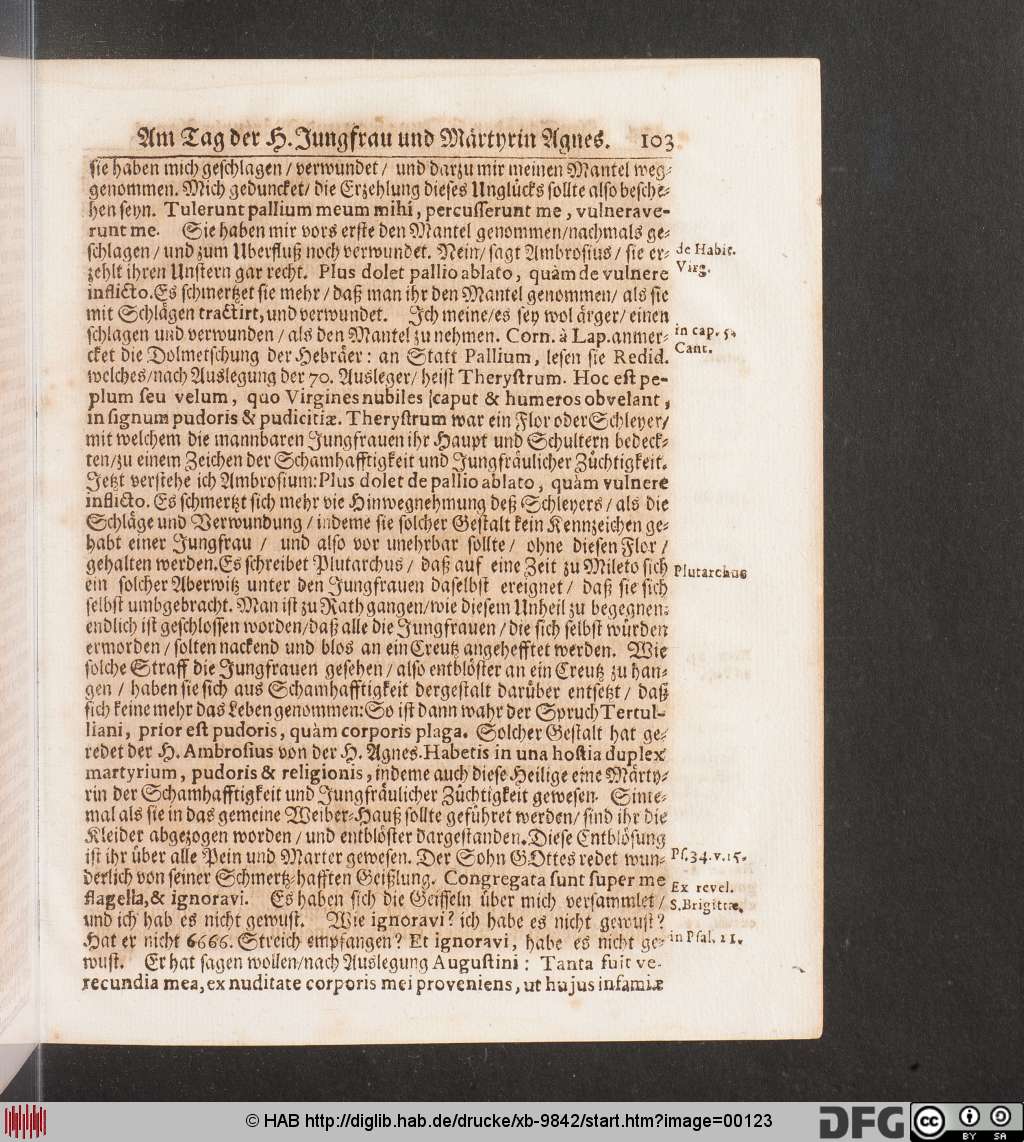 Am Tag der H. Jungfrau und Märtyrin Agnes. 103
sie haben mich geschlagen / verwundet / und darzu mir meinen Mantel weg-
genommen. Mich geduncket / die Erzehlung dieses Unglücks sollte also besche-
hen seyn. Tulerunt pallium meum mihi, percusserunt me, vulnerave-
runt me. Sie haben mir vors erste den Mantel genommen/nachmals ge-
schlagen / und zum Uberfluß noch verwundet. Nein / sagt Ambrosius / sie er-
de Habit.
Virg.
zehlt ihren Unstern gar recht. Plus dolet pallio ablato, quàm de vulnere
inflicto. Es schmertzet sie mehr / daß man ihr den Mantel genommen / als sie
mit Schlägen tractirt, und verwundet. Ich meine/es sey wol ärger/ einen
schlagen und verwunden / als den Mantel zu nehmen. Corn. à Lap. anmer-
in cap. 5.
Cant.
cket die Dolmetschung der Hebräer: an Statt Pallium, lesen sie Redid.
welches/nach Auslegung der 70. Ausleger/ heist Therystrum. Hoc est pe-
plum seu velum, quo Virgines nubiles caput & humeros obvelant,
in signum pudoris & pudicitiæ. Therystrum war ein Flor oder Schleyer/
mit welchem die mannbaren Jungfrauen ihr Haupt und Schultern bedeck-
ten/zu einem Zeichen der Schamhafftigkeit und Jungfräulicher Züchtigkeit.
Jetzt verstehe ich Ambrosium: Plus dolet de pallio ablato, quàm vulnere
inflicto. Es schmertzt sich mehr vie Hinwegnehmung deß Schleyers / als die
Schläge und Verwundung / indeme sie solcher Gestalt kein Kennzeichen ge-
habt einer Jungfrau / und also vor unehrbar sollte / ohne diesen Flor /
gehalten werden. Es schreibet Plutarchus / daß auf eine Zeit zu Mileto sich
Plutarchus
ein solcher Aberwitz unter den Jungfrauen daselbst ereignet / daß sie sich
selbst umbgebracht. Man ist zu Rath gangen/wie diesem Unheil zu begegnen:
endlich ist geschlossen worden/daß alle die Jungfrauen / die sich selbst würden
ermorden / solten nackend und blos an ein Creutz angehefftet werden. Wie
solche Straff die Jungfrauen gesehen / also entblöster an ein Creutz zu han-
gen / haben sie sich aus Schamhafftigkeit dergestalt darüber entsetzt / daß
sich keine mehr das Leben genommen: So ist dann wahr der Spruch Tertul-
liani, prior est pudoris, quàm corporis plaga. Solcher Gestalt hat ge-
redet der H. Ambrosius von der H. Agnes. Habetis in una hostia duplex
martyrium, pudoris & religionis, indeme auch diese Heilige eine Märty-
rin der Schamhafftigkeit und Jungfräulicher Züchtigkeit gewesen. Sinte-
mal als sie in das gemeine Weiber-Hauß sollte geführet werden / sind ihr die
Kleider abgezogen worden / und entblöster dargestanden. Diese Entblösung
ist ihr über alle Pein und Marter gewesen. Der Sohn GOttes redet wun-
Ps. 34. v. 15.
derlich von seiner Schmertz-hafften Geißlung. Congregata sunt super me
Ex revel.
flagella, & ignoravi. Es haben sich die Geisseln über mich versammlet /
S. Brigittæ.
und ich hab es nicht gewust. Wie ignoravi? ich habe es nicht gewust?
Hat er nicht 6666. Streich empfangen? Et ignoravi, habe es nicht ge-
in Psal. 21.
wust. Er hat sagen wollen/nach Auslegung Augustini: Tanta fuit ve-
recundia mea, ex nuditate corporis mei proveniens, ut hujus infamiæ
© HAB http://diglib.hab.de/drucke/xb-9842/start.htm?image=00123
DFG
cc
BY SA